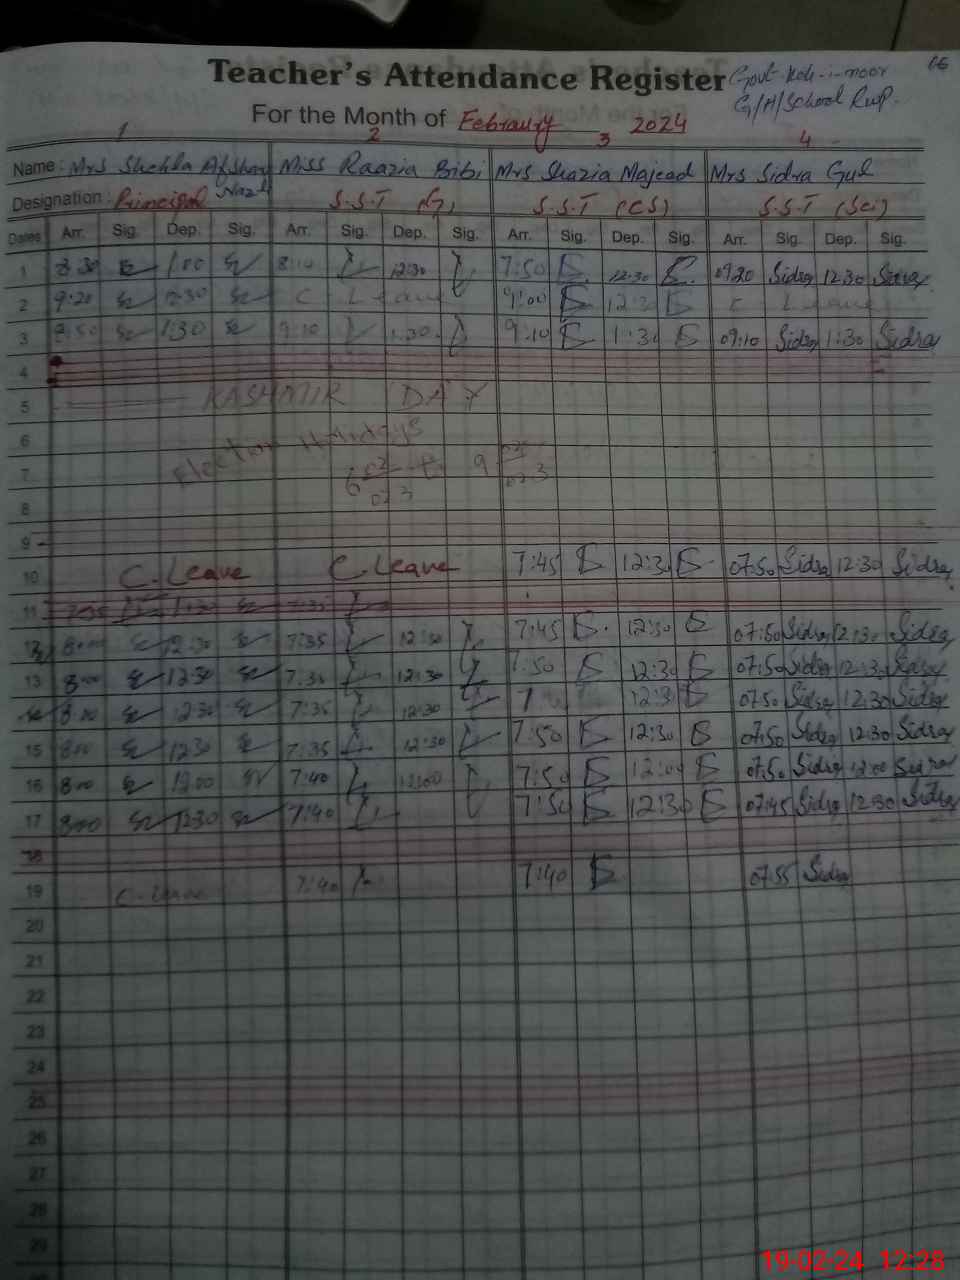 Teacher's Attendance Register Govt Koh-i-noor 66
For the Month of February 2024 G/H/School Rwp.
1 2 3 4
Name: Mrs Shehla Afshan Nazli Miss Raazia Bibi Mrs Shazia Majeed Mrs Sidra Gul
Designation: Principal S.S.T (G) S.S.T (CS) S.S.T (Sci)
Dates Arr. Sig. Dep. Sig. Arr. Sig. Dep. Sig. Arr. Sig. Dep. Sig. Arr. Sig. Dep. Sig.
1 8:30 1:00 8:10 12:30 7:50 12:30 0920 Sidra 12:30 Sidra
2 9:20 12:30 C Leave 9:00 12:30 C Leave
3 8:50 1:30 9:10 1:30 9:10 1:30 09:10 Sidra 1:30 Sidra
4
5 KASHMIR DAY
6 Election Holidays
7 6 9
8
9
10 C. Leave C. Leave 7:45 12:30 07:50 Sidra 12:30 Sidra
11 7:35
12 8:00 12:30 7:35 12:30 7:45 12:30 07:50 Sidra 12:30 Sidra
13 8:00 12:30 7:35 12:30 7:50 12:30 07:50 Sidra 12:30 Sidra
14 8:00 12:30 7:35 12:30 12:30 07:50 Sidra 12:30 Sidra
15 8:00 12:30 7:35 12:30 7:50 12:30 07:50 Sidra 12:30 Sidra
16 8:00 12:00 7:40 12:00 7:50 12:00 07:50 Sidra 12:00 Sidra
17 8:00 12:30 7:40 7:50 12:30 07:45 Sidra 12:30 Sidra
18
19 C. Leave 7:40 7:40 07:55 Sidra
20
21
22
23
24
25
26
27
28
29
19-02-24 12:28